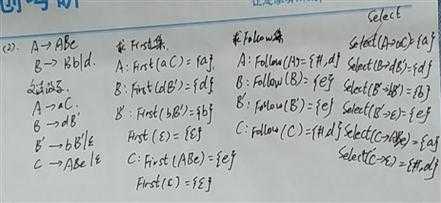 Select
(2). A→ABe
B→Bb|d.
A→aC.
B→dB'
B'→bB'|ε
C→ABe|ε
求First集
A: First(aC)={a}
B: First(dB')={d}
B': First(bB')={b}
First(ε)={ε}
C: First(ABe)={e}
First(ε)={ε}
求Follow集
A: Follow(A)={#,d}
B: Follow(B)={e}
B': Follow(B')={e}
C: Follow(C)={#,d}
Select(A→aC)={a}
Select(B→dB')={d}
Select(B'→bB')={b}
Select(B'→ε)={e}
Select(C→ABe)={a}
Select(C→ε)={#,d}